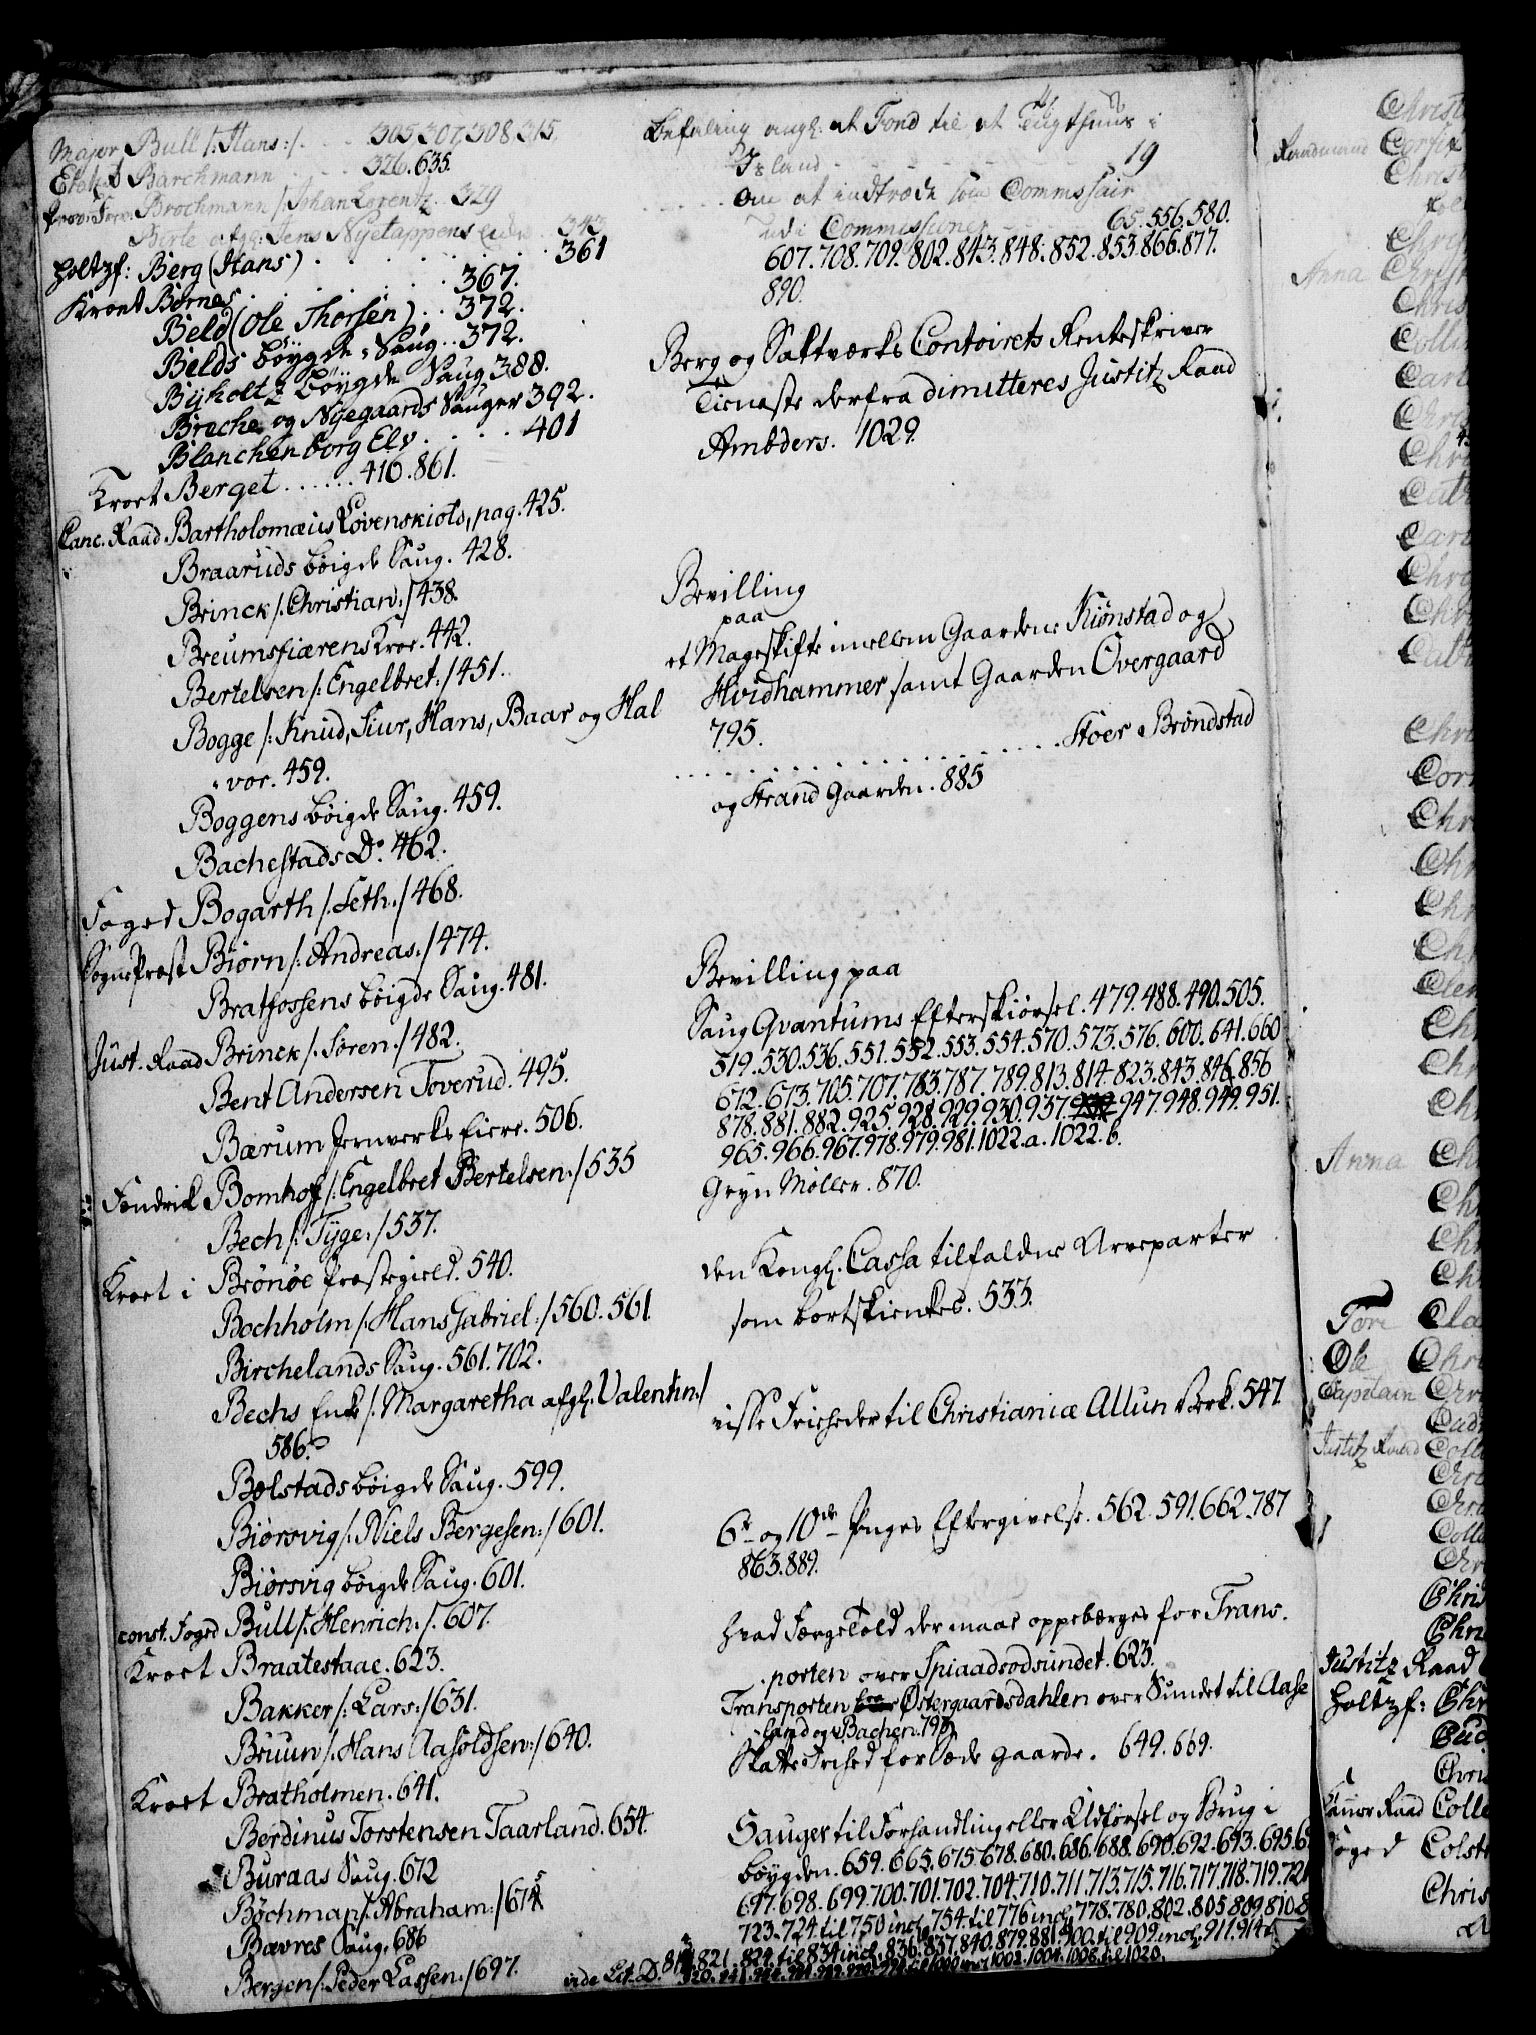 Major Bull /: Hans :/ . . . 305. 307. 308. 315.
Etatzrd Barchmann . . . 326. 635.
Brochmann /: Johan Lorentz. 329
Birte afg: Jens Nyetappens 343
holtzf: Berg (Hans) . . . . . . 361
Kroet Børnes . . . . . . 367.
Beld (Ole Thorsen) . . 372.
Belds böygde Saug . . 372.
Byholtz böygde Saug 388.
Breche og Nyegaards Sauger 392.
Blanchenborg Elv . . . . 401
Kroet Berget . . . . . . 410. 861.
Canc. Raad Bartholomæus Løvenskiold, pag. 425.
Braaruds böigde Saug. 428.
Brinck /: Christian :/ 438.
Breumsfiærens Kroe. 442.
Bertelsen /: Engelbret :/ 451.
Bogge /: Knud, Siur, Hans, Baar og Hal
vor. 459.
Boggens böigde Saug. 459.
Bachestads Do. 462.
Foged Bogarth /: Seth :/ 468.
SognePræst Biørn /: Andreas :/ 474.
Bratfossens böigde Saug. 481.
Just. Raad Brinck /: Søren :/ 482.
Bent Andersen Toverud. 495.
Bærum Jernverks Eiere. 506.
Fendrick Bomhof /: Engelbret Bertelsen :/ 535
Bech /: Tyge :/ 537.
Kroet i Brønøe Præstegield. 540.
Bochholm /: Hans Gabriel :/ 560. 561.
Birchelands Saug. 561. 702.
Bechs Enke /: Margaretha afgl. Valentin :/
586.
Bolstads böigde Saug. 599.
Biørsvig /: Niels Bergesen :/ 601.
Biørsvig böigde Saug. 601.
const. Foged Bull /: Henrich :/ 607.
Kroet Braatestaae. 623.
Bakker /: Lars :/ 631.
Bruun /: Hans Aasoldsen :/ 640.
Kroet Bratholmen. 641.
Berdinus Torstensen Taarland. 654.
Buraas Saug. 672
Bøchman /: Abraham :/ 675
Bævres Saug. 686
Bergen /: Peder Lassen :/ 697.
Befaling angl: at Fond til et Tugthuus i
Island . . . 19
. . . . . Om at indtræde som Commissair
udi Commissioner . . . 65. 556. 580.
607. 708. 709. 802. 843. 848. 852. 853. 866. 877.
890.
Berg og Saltværks Contoirets Renteskriver
Tieneste derfra dimitteres Justitz Raad
Ambders. 1029.
Bevilling
paa
et Mageskifte imellem Gaardene Kiønstad og
Hvidhammer samt Gaarden Overgaard
795.
. . . . . . . . . . Stoer Brøndstad
og Strand Gaarden. 885
Bevilling paa
Saug Qvantums Efterskiørsel. 479. 488. 490. 505.
519. 530. 536. 551. 552. 553. 554. 570. 573. 576. 600. 641. 660
672. 673. 705. 707. 783. 787. 789. 813. 814. 823. 843. 846. 856
878. 881. 882. 925. 928. 929. 930. 937. 947. 948. 949. 951.
965. 966. 967. 978. 979. 981. 1022. a. 1022. b.
Gryn Møller. 870.
den Kongl. Cassa tilfaldne Arveparter
som bortskienkes. 533.
visse Friheder til Christianiæ Allun Verk. 547.
6te og 10de Penges Eftergivelse. 562. 591. 662. 787
863. 889.
hvad FærgeTold der maae oppebærges for Trans-
porten over Spiaadsodsundet. 623.
Transporten fra Østergaardsdahlen over Sundet til Aase
Skatte Frihed for Sæde Gaarde. 649. 669.
Sauger til Forhandling eller Udførsel og Brug i
böygden. 659. 665. 675. 678. 680. 686. 688. 690. 692. 693. 695.
697. 698. 699. 700. 701. 702. 704. 710. 711. 713. 715. 716. 717. 718. 719. 721
723. 724. til 750 incl. 754. til 776 incl. 778. 780. 802. 805. 809. 810.
821. 824. til 834 incl. 836. 837. 840. 879. 881. 900. til 909. incl. 911. 914
vide Lit. D.
Christ
Anna
Anna
Tore Cla
Ole Chr
Capitain
Justitz Raad Coll
Justitz Raad
holtzf: Chr
Raad Colle
Foged Colst
Chris